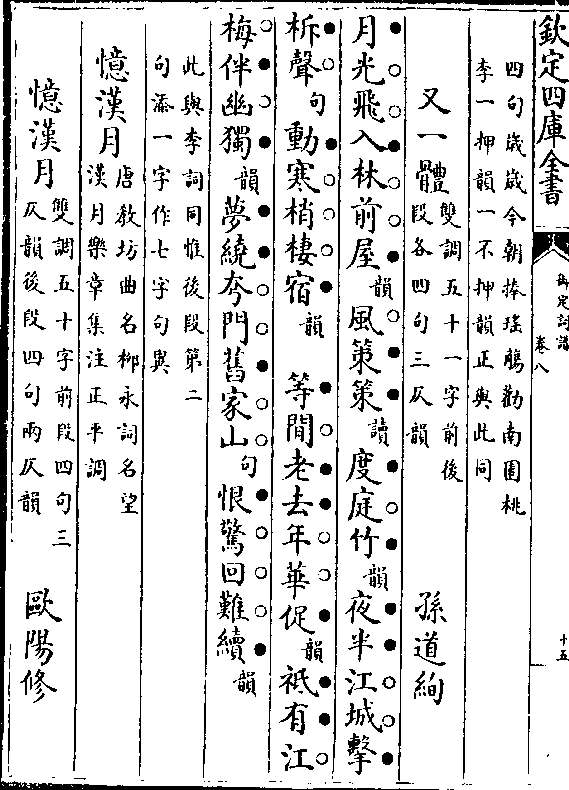 欽定四庫全書
御定詞譜
卷八
十五
四句歲歲今朝捧瑤觴勸南園桃
李一押韻一不押韻正與此同
又一體 雙調五十一字前後
段各四句三仄韻 孫道絢
月光飛入林前屋韻風策策讀度庭竹韻夜半江城擊
柝聲句動寒梢棲宿韻 等閒老去年華促韻祗有江
梅伴幽獨韻夢繞夸門舊家山句恨驚回難續韻
此與李詞同惟後段第二
句添一字作七字句異
憶漢月 唐教坊曲名柳永詞名望
漢月樂章集注正平調
憶漢月 雙調五十字前段四句三
仄韻後段四句兩仄韻 歐陽修